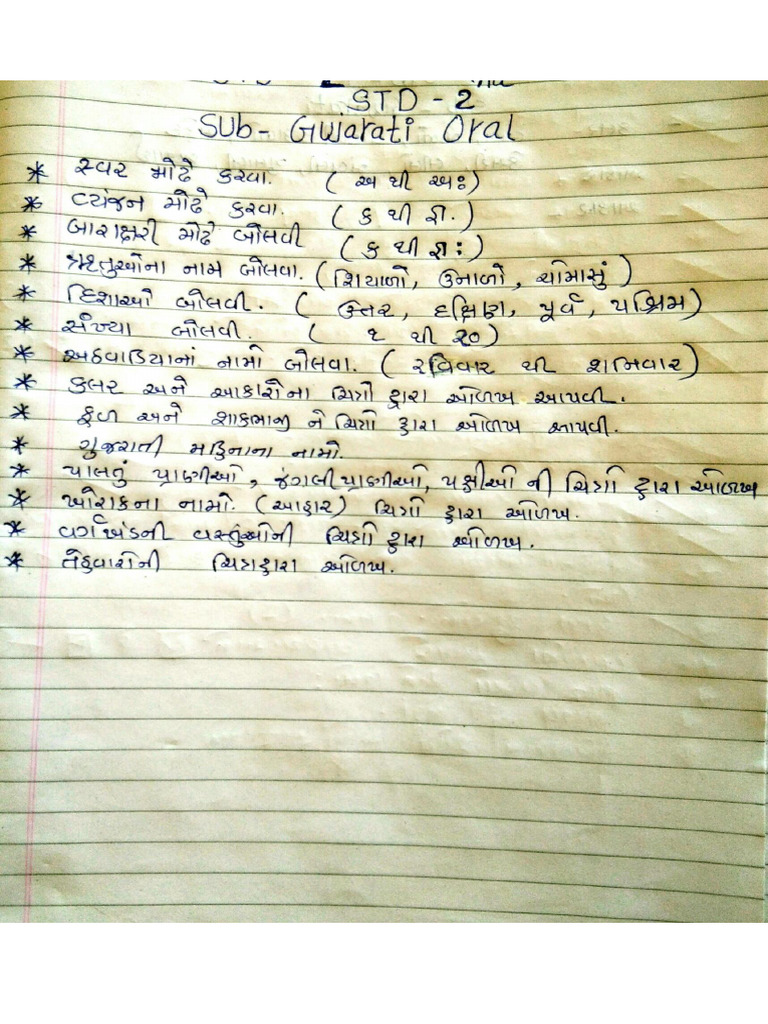 STD - 2
Sub- Gujarati Oral
* સ્વર મોઢે કરવા. ( અ થી અઃ )
* વ્યંજન મોઢે કરવા. ( ક થી જ્ઞ. )
* બારાક્ષરી મોઢે બોલવી ( ક થી જ્ઞઃ )
* ઋતુઓના નામ બોલવા. ( શિયાળો, ઉનાળો, ચોમાસું )
* દિશાઓ બોલવી. ( ઉત્તર, દક્ષિણ, પૂર્વ, પશ્ચિમ )
* સંખ્યા બોલવી. ( ૧ થી ૨૦ )
* અઠવાડિયાનાં નામો બોલવા. ( રવિવાર થી શનિવાર )
* કલર અને આકારોના ચિત્રો દ્વારા ઓળખ આપવી.
* ફળ અને શાકભાજી ને ચિત્રો દ્વારા ઓળખ આપવી.
* ગુજરાતી મહિનાના નામો.
* પાલતું પ્રાણીઓ, જંગલી પ્રાણીઓ, પક્ષીઓ ની ચિત્રો દ્વારા ઓળખ
* ખોરાકના નામો. (આહાર) ચિત્રો દ્વારા ઓળખ.
* વર્ગખંડની વસ્તુંઓની ચિત્રો દ્વારા ઓળખ.
* તહેવારોની ચિત્રદ્વારા ઓળખ.